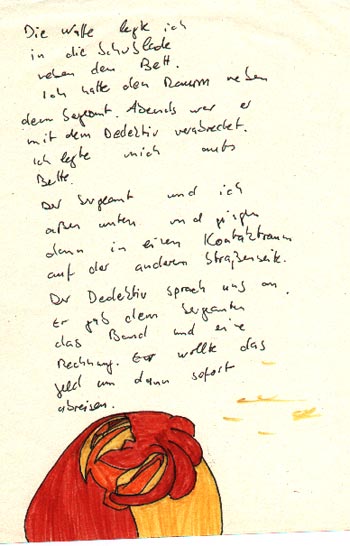 Die Waffe legte ich
in die Schublade
neben dem Bett.
Ich hatte den Raum neben
dem Sergeant. Abends war er
mit dem Dedektiv verabredet.
Ich legte mich aufs
Bette.
Der Sergeant und ich
aßen unten und gingen
dann in einen Kontaktraum
auf der anderen Straßenseite.
Der Dedektiv sprach uns an.
Er gab dem Sergeanten
das Band und eine
Rechnung. Er wollte das
Geld um dann sofort
abreisen.